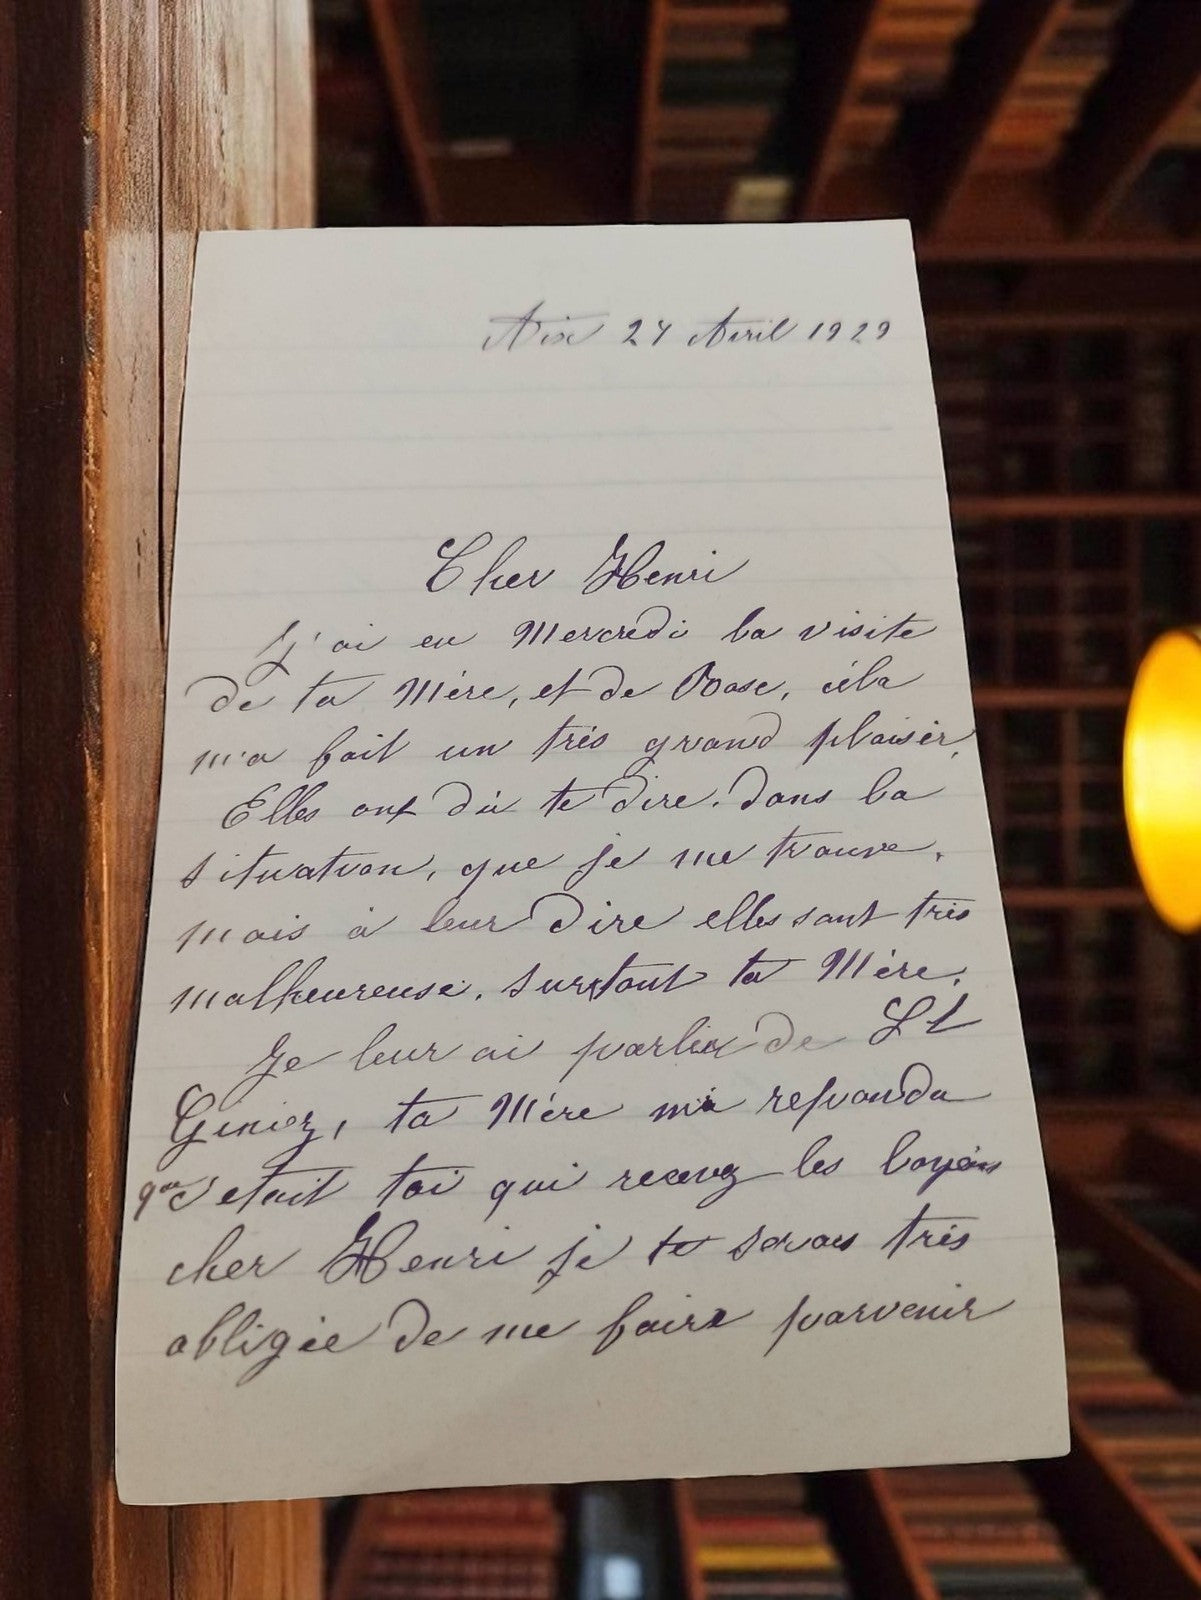 Aix 27 Avril 1929
Cher Henri
J'ai eu Mercredi la visite
de ta Mère, et de Rose, céla
m'a fait un très grand plaisir,
Elles ont dû te dire. dans la
situation, que je me trouve.
mais à leur dire elles sont très
malheureuse. surtout ta Mère.
Je leur ai parler de St
Giniez, ta Mère ma reponda
que c'etait toi qui recevez les loyers
cher Henri je te serais très
obligée de me faire parvenir